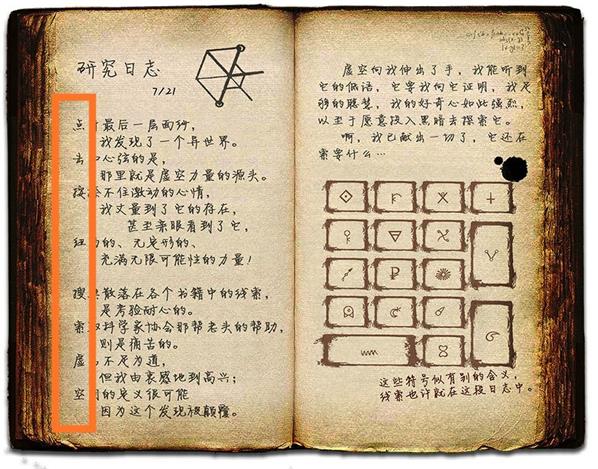 研究日志
7/21
点开最后一层面纱,
我发现了一个异世界。
击中心弦的是,
那里就是虚空力量的源头。
按捺不住激动的心情,
我丈量到了它的存在,
甚至亲眼看到了它,
动的、无定形的、
充满无限可能性的力量!
搜集散落在各个书籍中的线索,
是考验耐心的。
索取科学家协会那帮老头的帮助,
则是痛苦的。
虚名不足为道,
但我由衷感地到高兴;
空间的定义很可能
因为这个发现被颠覆。
虚空向我伸出了手,我能听到
它的低语,它要我向它证明,我足
够的聪慧,我的好奇心如此强烈,
以至于愿意投入黑暗去探索它。
啊,我已献出一切了,它还在
索要什么…
这些符号似有别的含义,
线索也许就在这段日志中。